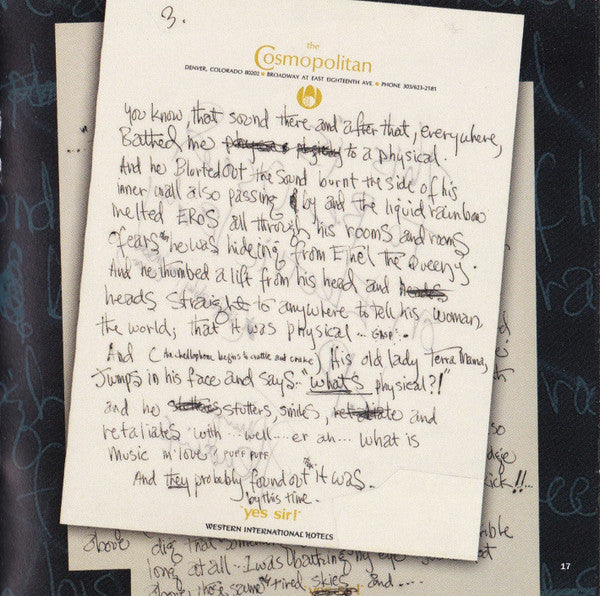 3.
the
Cosmopolitan
DENVER, COLORADO 80202 • BROADWAY AT EAST EIGHTEENTH AVE. • PHONE 303/623-2181
You know that sound there and after that, everywhere,
Bathed me to a physical.
And he Blurted out the sound burnt the side of his
inner wall also passing by and the liquid rainbow
melted EROS all through his rooms and rooms
of ears he was hideing from Ethel the Queeny.
And he thumbed a lift from his head and
heads straight to anywhere to tell his woman,
the world; that it was physical ... GASP.
And (the cellophone begins to crattle and crake) his old lady Terra Mama,
Jumps in his face and says.. "whats physical?!"
and he stutters, smiles, and
retaliates with ... well....er ah.... what is
music m' love PUFF PUFF
And they probably found out it was.
by this time.
'yes sir!'
WESTERN INTERNATIONAL HOTELS
so
kick!!...
above
dig that
long at all ... I was
above, those same tired skies and ....
17